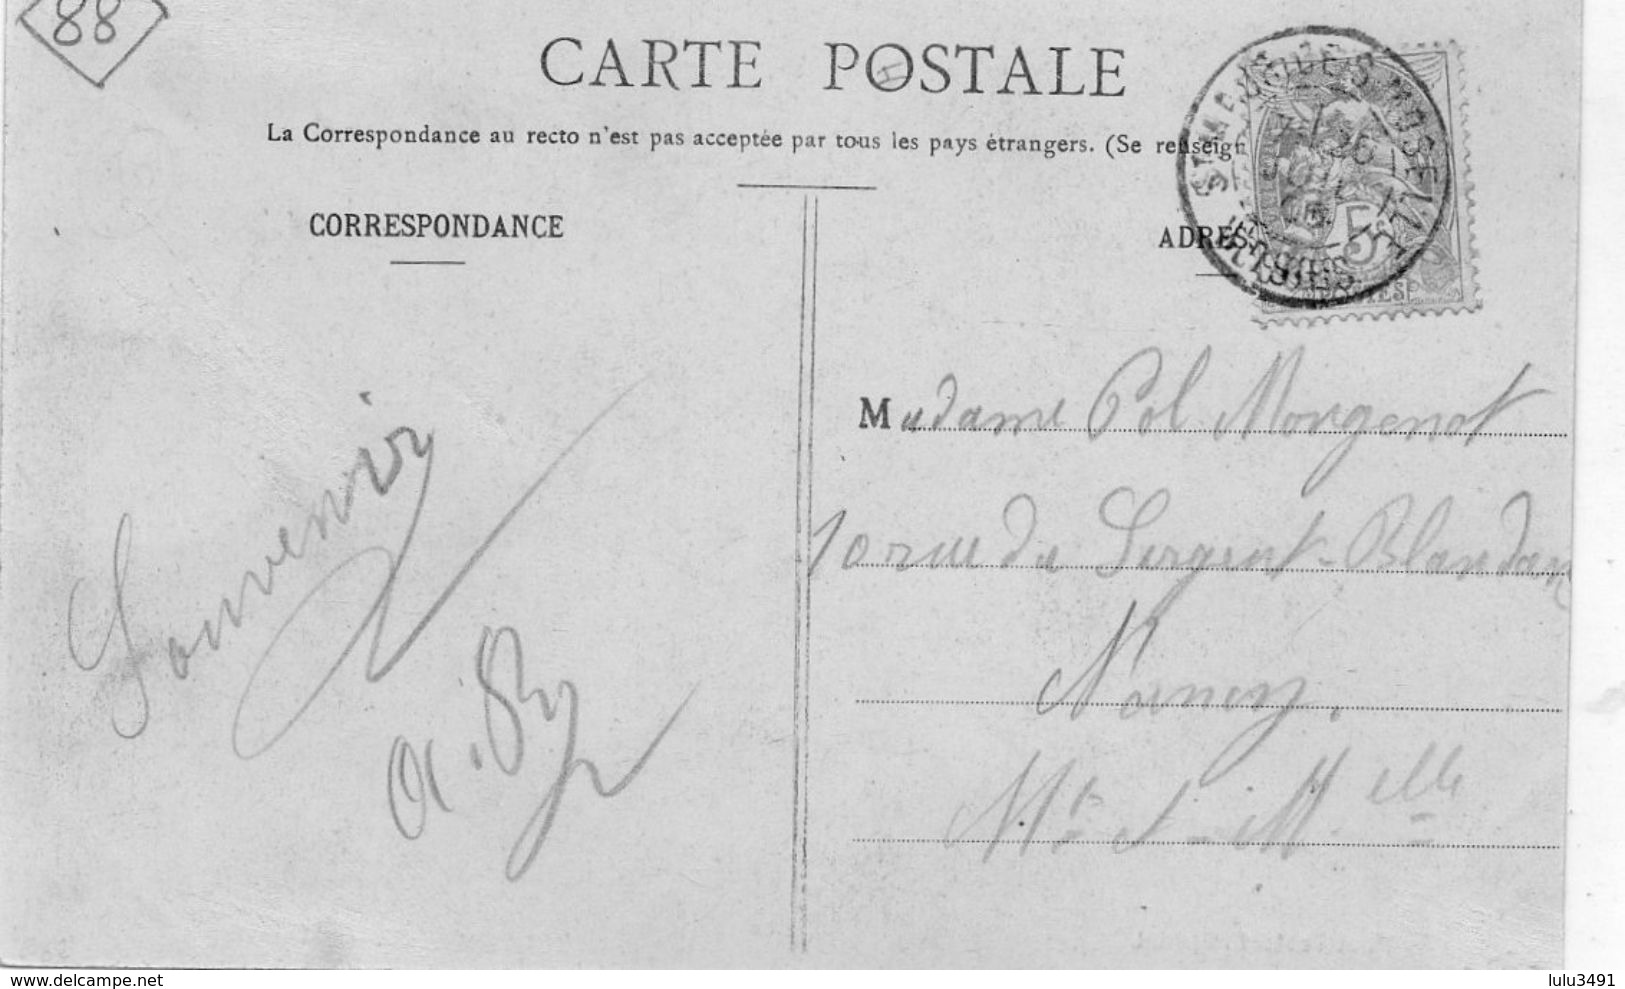 88
CARTE POSTALE
La Correspondance au recto n'est pas acceptée par tous les pays étrangers. (Se renseign
CORRESPONDANCE
ADRES
5
POSTES
VOSGES
Souvenir
Madame Pol Morgenot
10 rue du Sergent-Blandan
Nancy.
Mthe et Mlle
www.delcampe.net
lulu3491